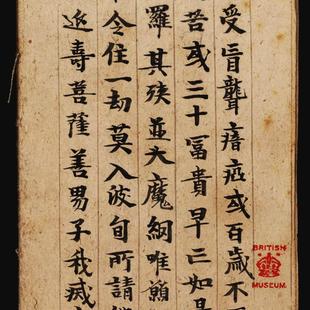 受盲聾瘖瘂或百歲不
苦或三十冨貴早亡如是
羅其殃並大魔網唯願
令住一劫莫入波旬所請
延壽菩薩善男子我滅
BRITISH
MUSEUM